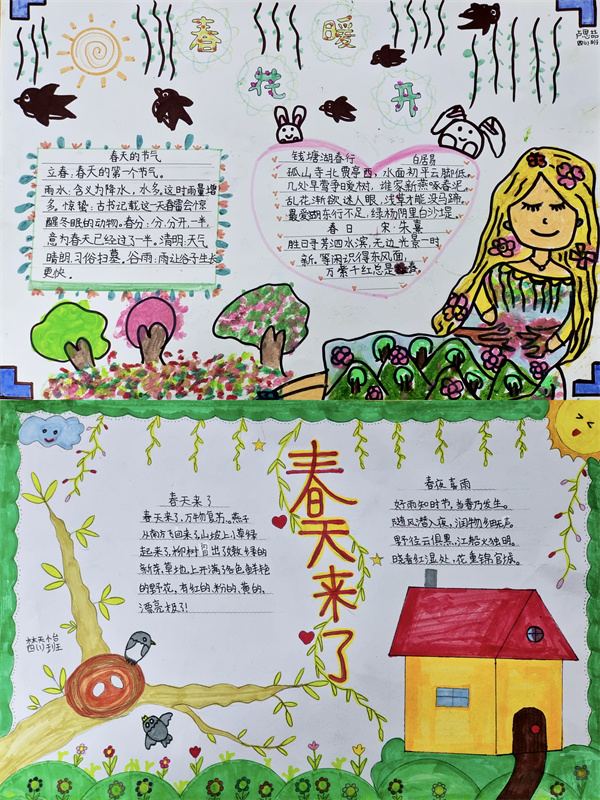 春 暖
花 开
卢思喆
四(1)班
春天的节气
立春,春天的第一个节气。
雨水,含义为降水,水多,这时雨量增
多,惊蛰:古书记载这一天春雷会惊
醒冬眠的动物。春分:分,分开,一半,
意为春天已经过了一半。清明:天气
晴朗,习俗扫墓,谷雨:雨让谷子生长
更快。
钱塘湖春行 白居易
孤山寺北贾亭西,水面初平云脚低。
几处早莺争暖树,谁家新燕啄春泥。
乱花渐欲迷人眼,浅草才能没马蹄。
最爱湖东行不足,绿杨阴里白沙堤。
春日 宋·朱熹
胜日寻芳泗水滨,无边光景一时
新。等闲识得东风面,
万紫千红总是春。
春天来了
春天来了
春天来了,万物复苏。燕子
从南方飞回来了,山坡上小草绿
起来了,柳树 出了嫩绿的
新芽,草地上开满了各色鲜艳
的野花,有红的,粉的,黄的,
漂亮极了!
春夜喜雨
好雨知时节,当春乃发生。
随风潜入夜,润物细无声。
野径云俱黑,江船火独明。
晓看红湿处,花重锦官城。
四(1)班